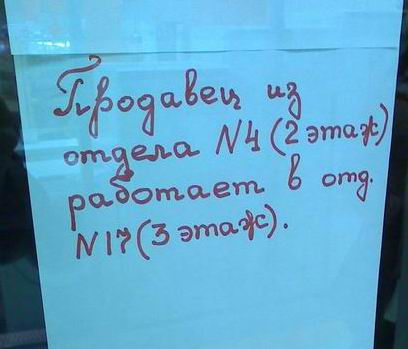 Продавец из
отдела N4 (2 этаж)
работает в отд.
N17 (3 этаж).